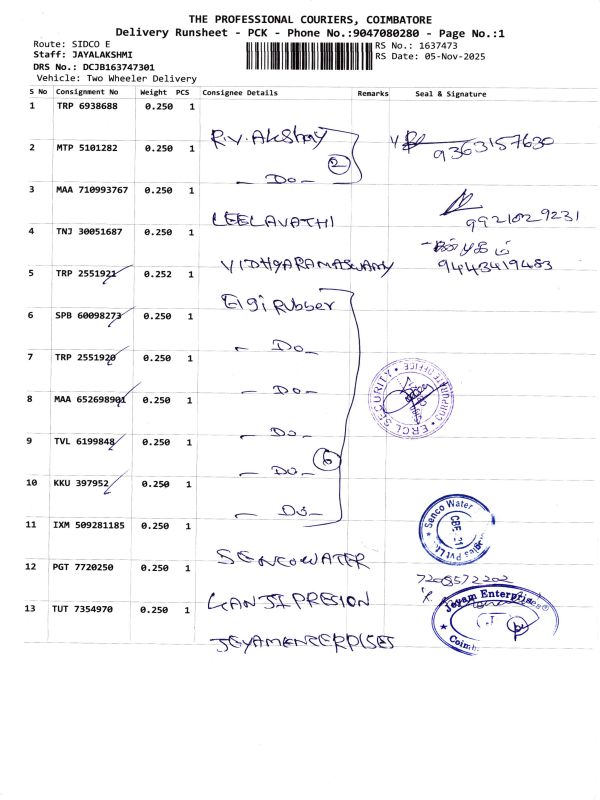 THE PROFESSIONAL COURIERS, COIMBATORE
Delivery Runsheet - PCK - Phone No.:9047080280 - Page No.:1
Route: SIDCO E
RS No.: 1637473
Staff: JAYALAKSHMI
RS Date: 05-Nov-2025
DRS No.: DCJB163747301
Vehicle: Two Wheeler Delivery
S No Consignment No Weight PCS Consignee Details Remarks Seal & Signature
1 TRP 6938688 0.250 1
R.V. Akshay 9363157630
2 MTP 5101282 0.250 1
2
- Do -
3 MAA 710993767 0.250 1
LEELAVATHI 9921029231
4 TNJ 30051687 0.250 1
VIDHYARAMASWAMY 9443419483
5 TRP 2551921 0.252 1
Elgi Rubber
6 SPB 60098273 0.250 1
- Do -
7 TRP 2551920 0.250 1
- Do -
ERCL SECURITY CORPORATE OFFICE
8 MAA 652698901 0.250 1
- Do -
9 TVL 6199848 0.250 1
6
- Do -
10 KKU 397952 0.250 1
- Do -
11 IXM 509281185 0.250 1
Senco Water
CBE 21
SENCOWATER
12 PGT 7720250 0.250 1
7208572202
GANJIPRESION
13 TUT 7354970 0.250 1
Jeyam Enterprises
JEYAMENCERPISES